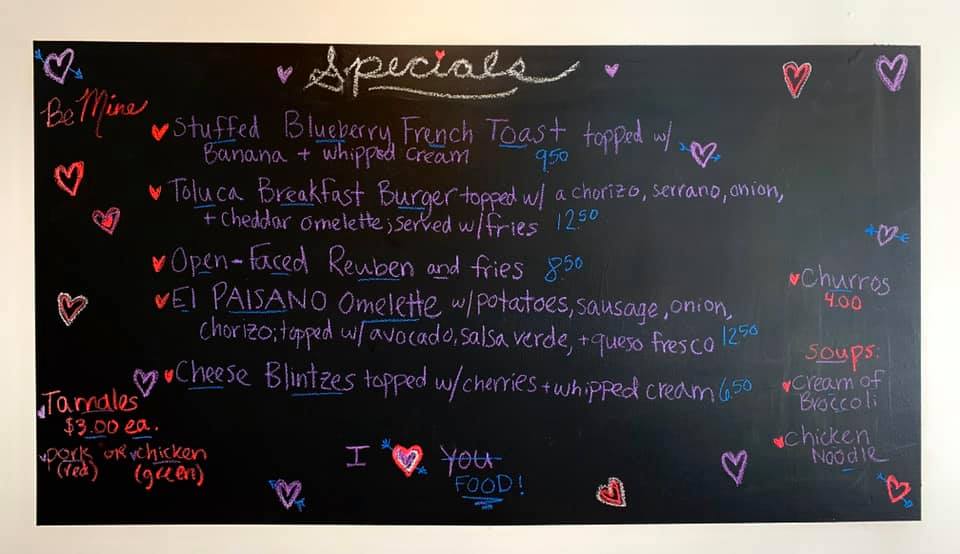 Specials
Be Mine
Stuffed Blueberry French Toast topped w/
Banana + whipped cream 9.50
Toluca Breakfast Burger topped w/ a chorizo, serrano, onion,
+ cheddar omelette; served w/fries 12.50
Open-Faced Reuben and fries 8.50
El PAISANO Omelette w/potatoes, sausage, onion,
chorizo; topped w/ avocado, salsa verde, + queso fresco 12.50
Cheese Blintzes topped w/cherries + whipped cream 6.50
Churros
4.00
Soups:
Cream of
Broccoli
Chicken
Noodle
Tamales
$3.00 ea.
pork or chicken
(red) (green)
I You
FOOD!